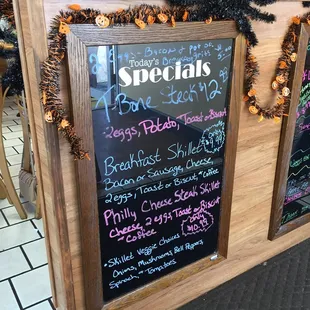 Bacon
Today's
Specials
T-Bone Steak $12
2 eggs, Potato, Toast or Biscuit
Breakfast Skillet
Bacon or Sausage, Cheese,
2 eggs, Toast or Biscuit
~ Coffee
Philly Cheese Steak Skillet
Cheese, 2 eggs Toast or
Biscuit
~ Coffee
only
~Skilled Veggie Choice
Onions, Mushrooms, Bell Peppers,
Spinach, ~ Tomatoes